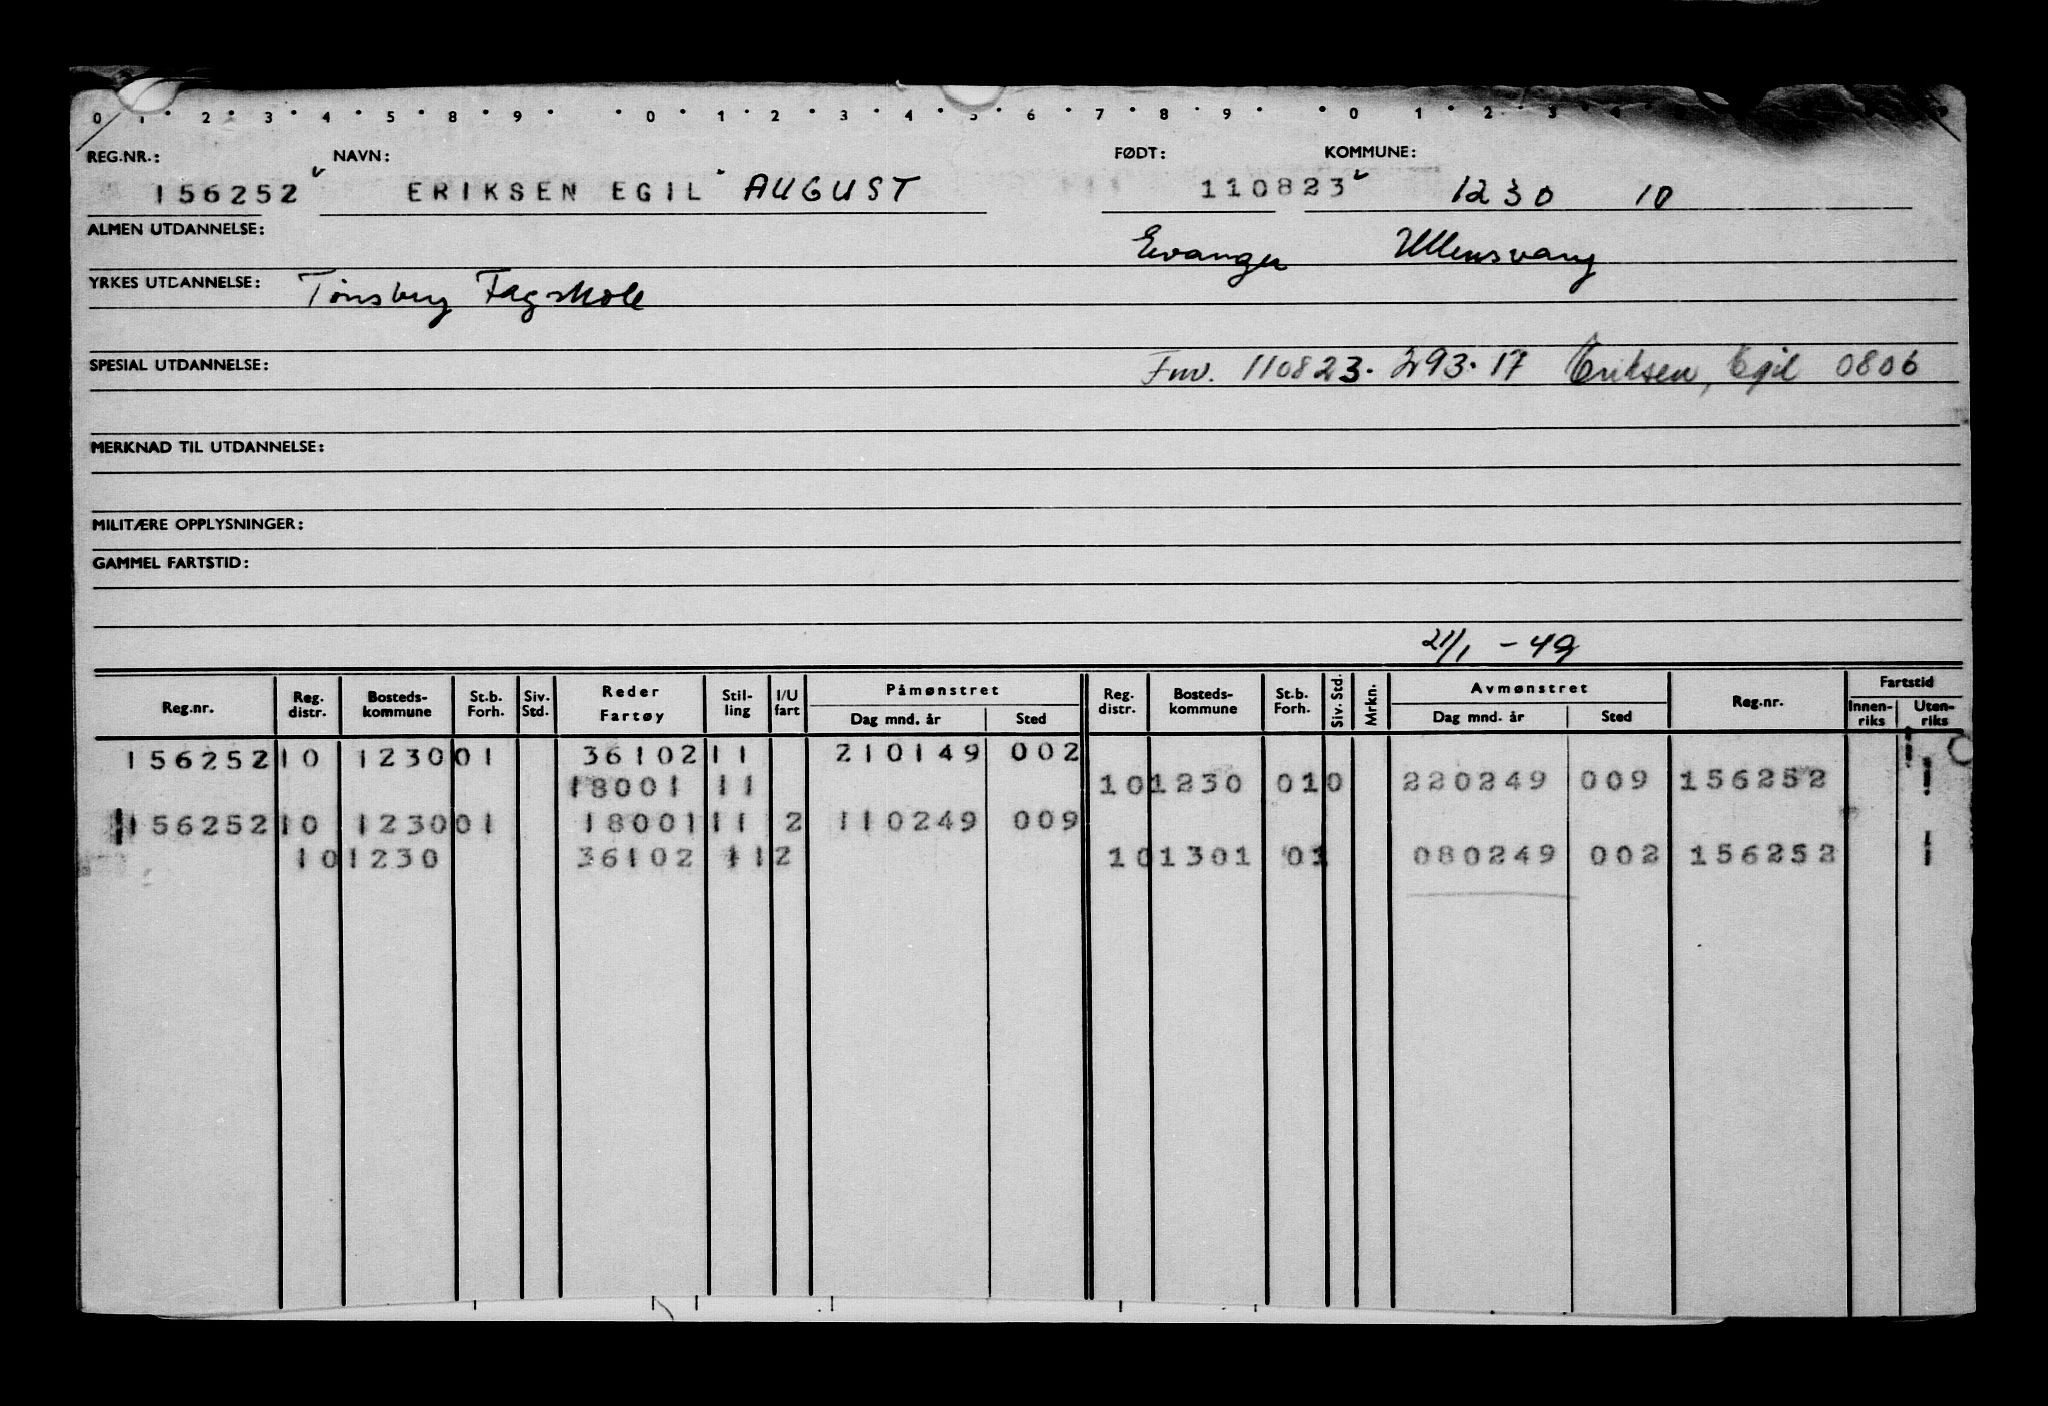 0 1 2 3 4 5 8 9 0 1 2 3 4 5 6 7 8 9 0 1 2 3 4 9
REG.NR.: NAVN: FØDT: KOMMUNE:
156252 ERIKSEN EGIL AUGUST 110823 1230 10
ALMEN UTDANNELSE: Evanger Ullensvang
YRKES UTDANNELSE: Tønsberg Fagskole
SPESIAL UTDANNELSE: Fnr. 110823. 293.17 Eriksen, Egil 0806
MERKNAD TIL UTDANNELSE:
MILITÆRE OPPLYSNINGER:
GAMMEL FARTSTID:
21/1 - 49
Reg.nr. Reg. distr. Bosteds-kommune St.b. Forh. Siv. Std. Reder Fartøy Stil-ling I/U fart Påmønstret Dag mnd. år Sted Reg. distr. Bosteds-kommune St.b. Forh. Siv. Std. Mrkn. Avmønstret Dag mnd. år Sted Reg.nr. Fartstid Innen-riks Uten-riks
156252 10 1230 01 36102 11 210149 002 1
18001 11 10 1230 01 0 220249 009 156252 1
156252 10 1230 01 18001 11 2 110249 009
10 1230 36102 11 2 10 1301 01 080249 002 156252 1